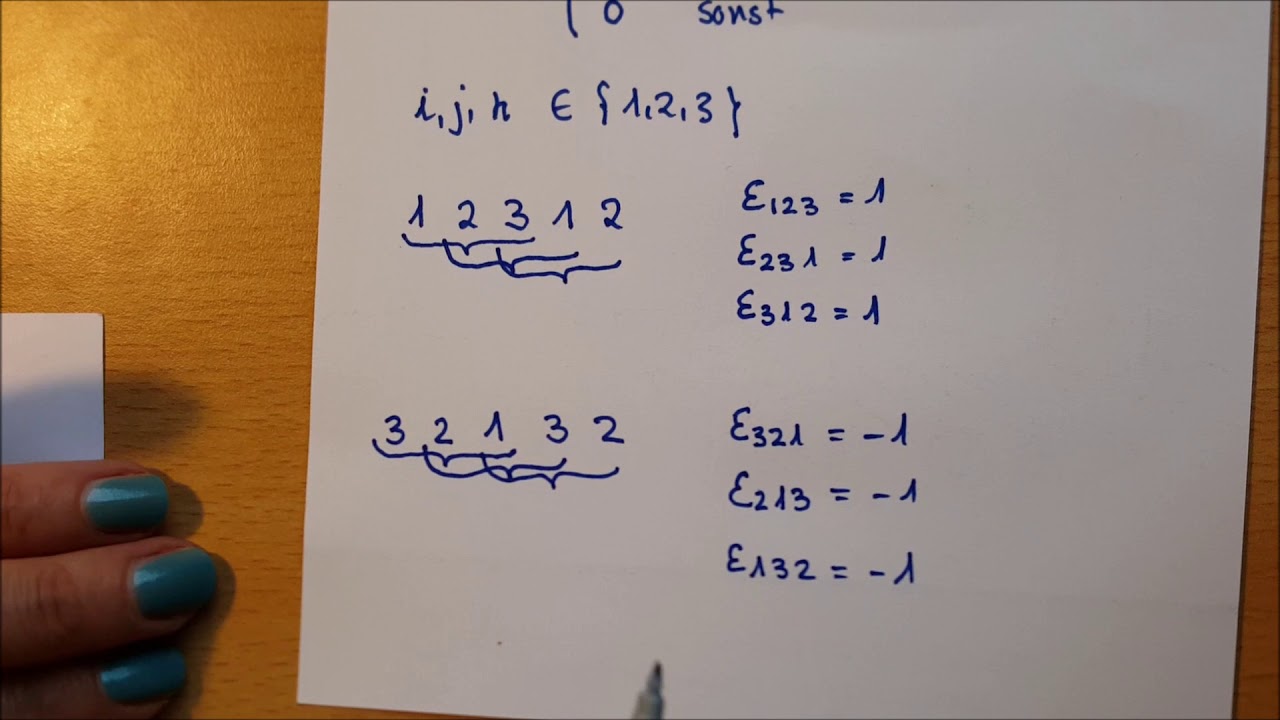 0 sonst
i, j, k ∈ {1, 2, 3}
1 2 3 1 2
ε123 = 1
ε231 = 1
ε312 = 1
3 2 1 3 2
ε321 = -1
ε213 = -1
ε132 = -1